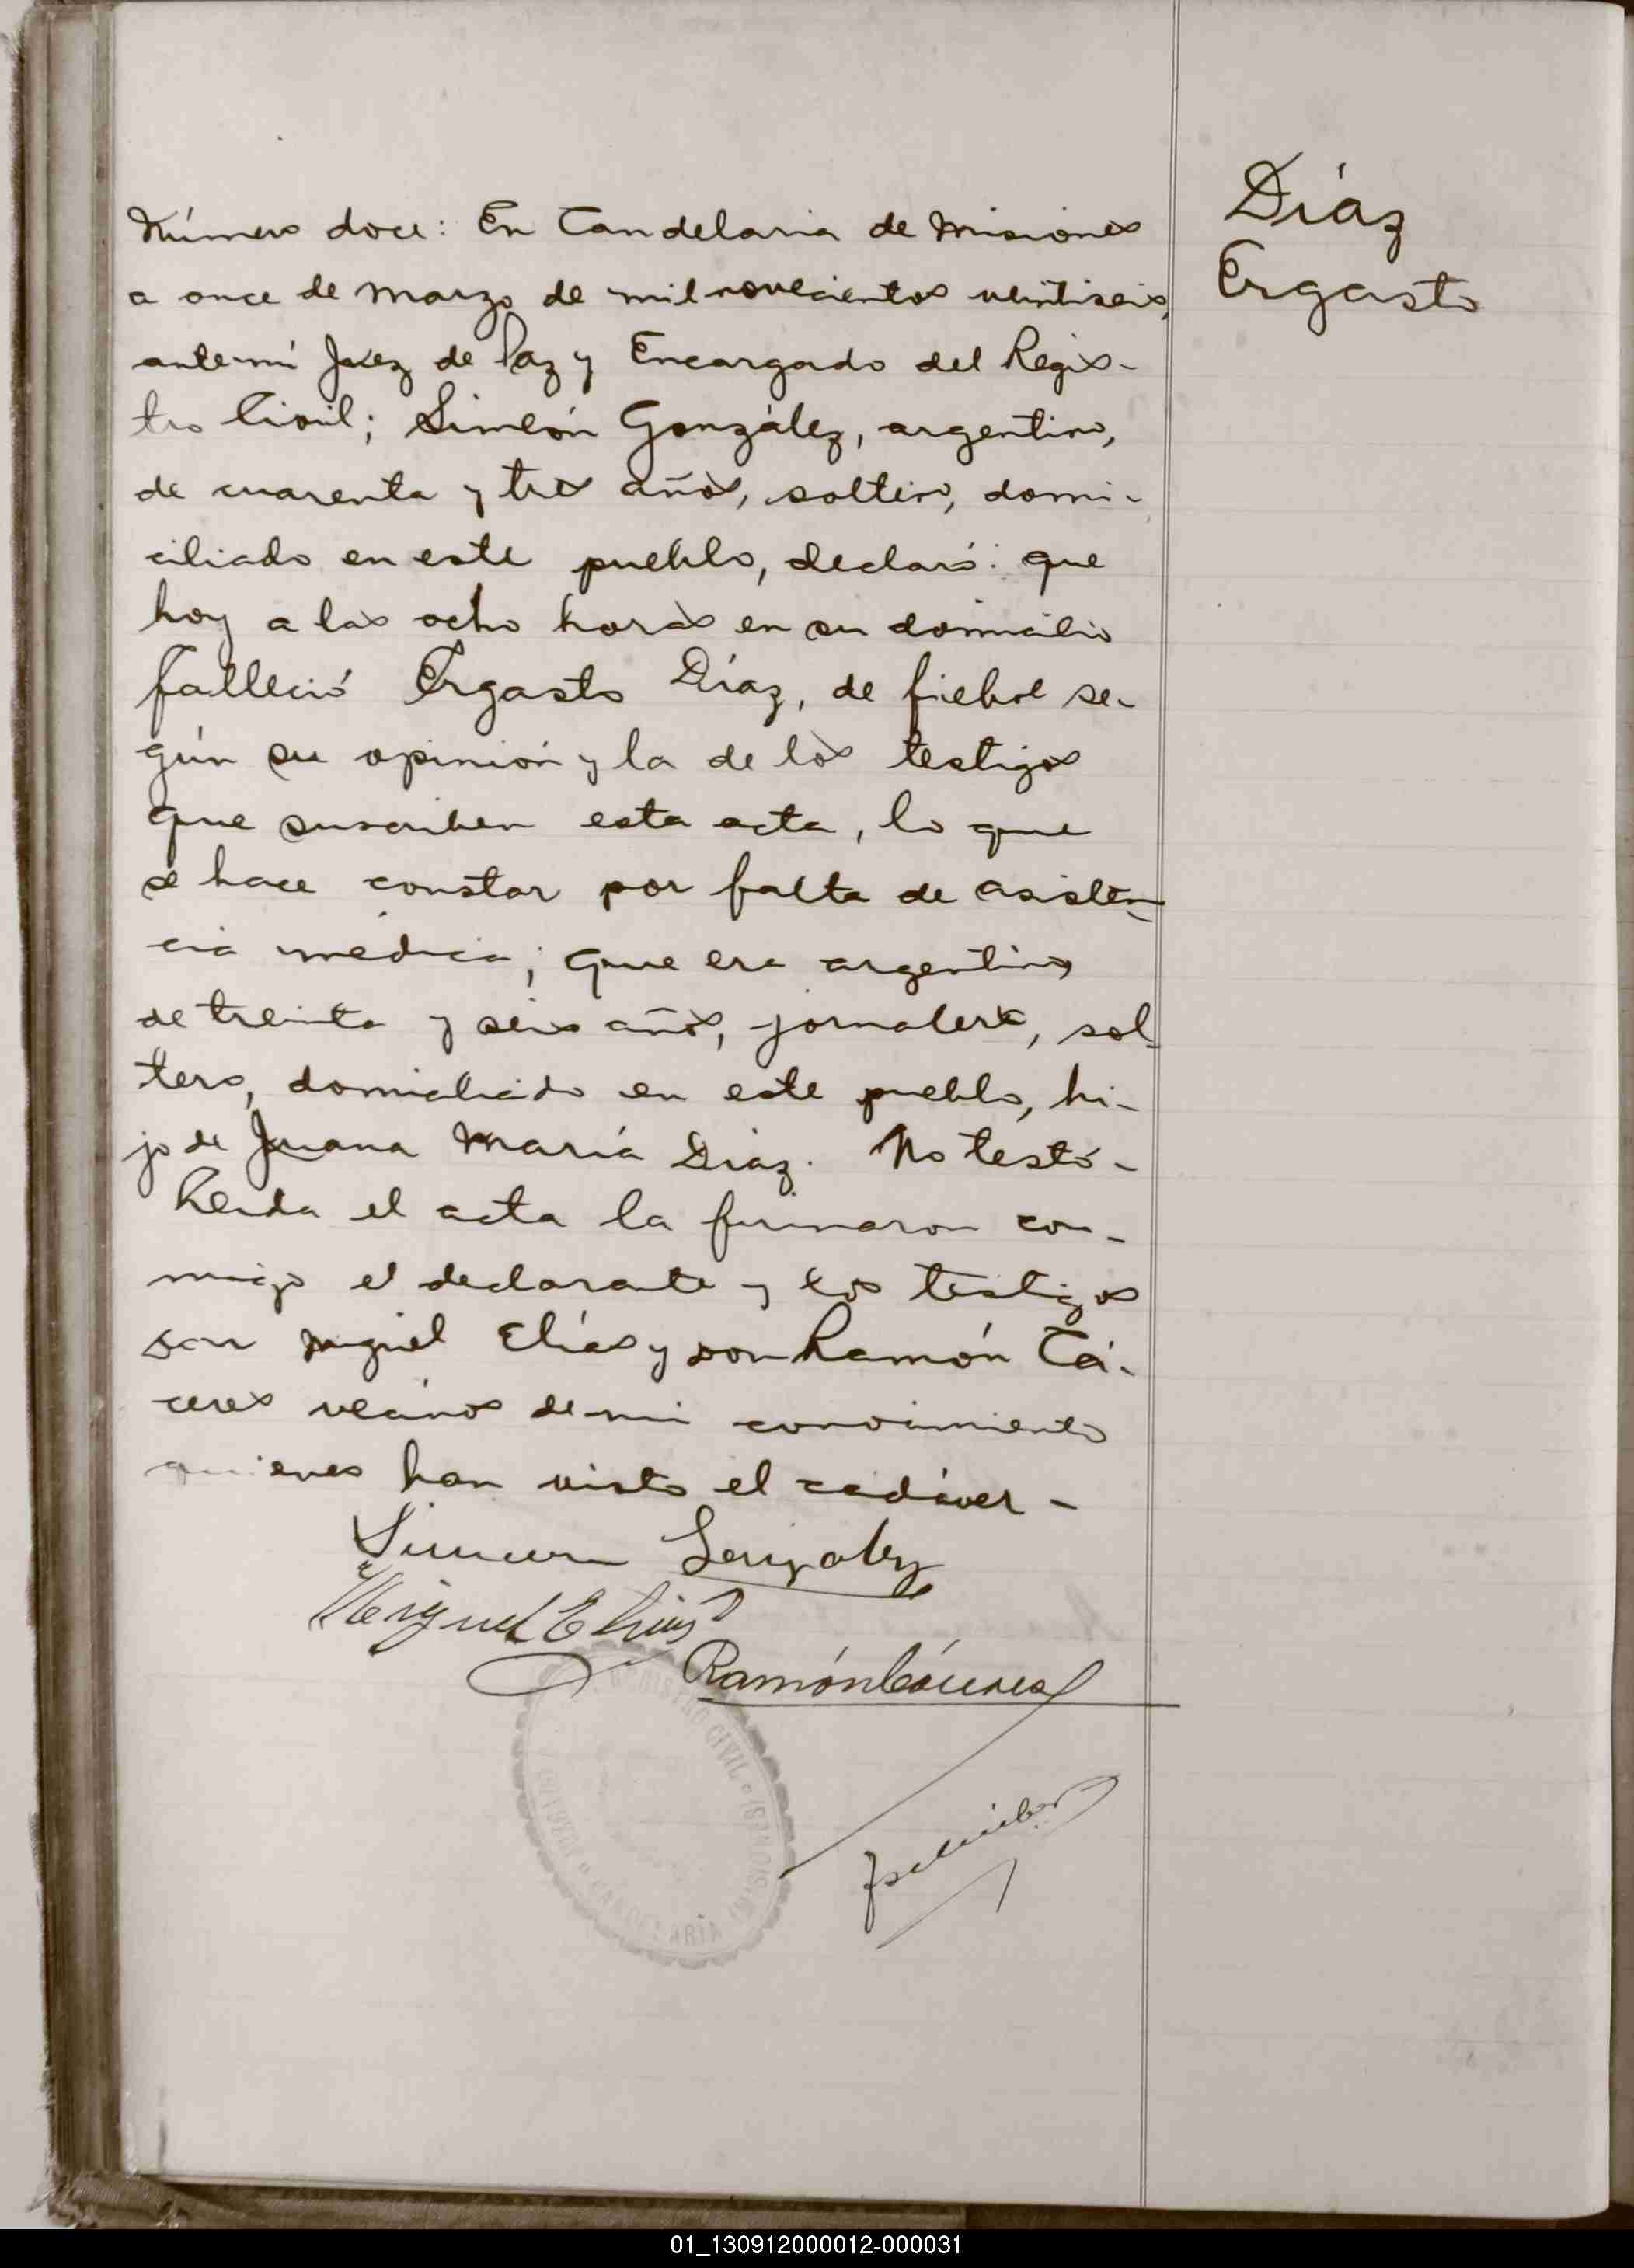 Número doce: En Candelaria de Misiones
a once de Marzo de mil novecientos veintiseis,
ante mi Juez de Paz y Encargado del Regis-
tro Civil; Simeón González, argentino,
de cuarenta y tres años, soltero, domi-
ciliado en este pueblo, declaró: que
hoy a las ocho horas en su domicilio
falleció Ergasto Díaz, de fiebre se-
gún su opinión y la de los testigos
que suscriben esta acta, lo que
se hace constar por falta de asisten-
cia médica; que era argentino
de treinta y seis años, jornalero, sol-
tero, domiciliado en este pueblo, hi-
jo de Juana María Díaz. No testó-
Leida el acta la firmaron con-
migo el declarante y los testigos
don Miguel Elías y don Ramón Cá-
ceres vecinos de mi conocimiento
quienes han visto el cadáver -
Simeon Gonzalez
Miguel Elias
Ramón Cáceres
REGISTRO CIVIL (MISIONES) CANDELARIA
Díaz
Ergasto
01_130912000012-000031